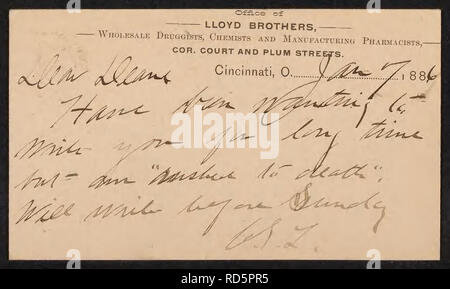 Office of
LLOYD BROTHERS,
WHOLESALE DRUGGISTS, CHEMISTS AND MANUFACTURING PHARMACISTS,
COR. COURT AND PLUM STREETS.
Cincinnati, O. Jan 7 1886
Dear Deane
Have been wanting to
write you for long time
but am "rushed to death".
Will write before Sunday
C.G.L.
alamy
Image ID: RD5PR5
www.alamy.com